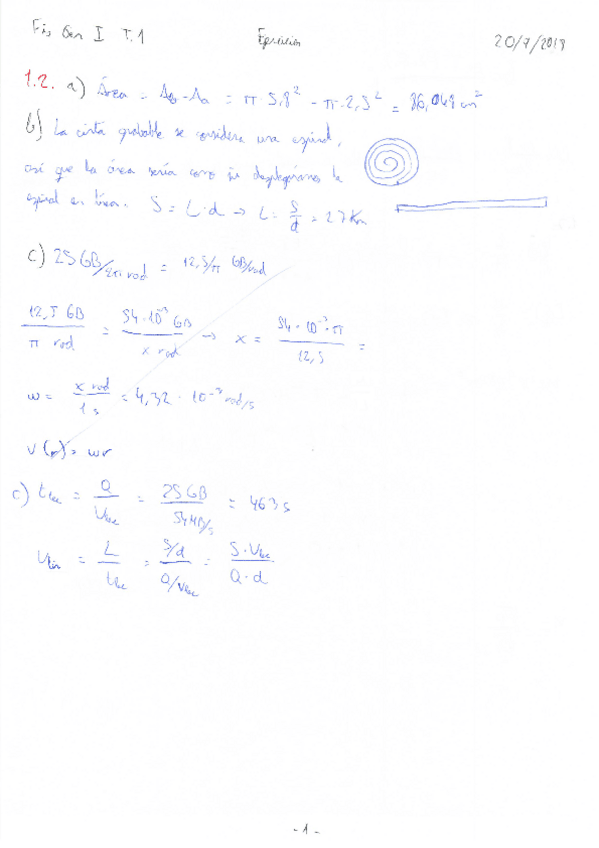 Fis Gen I T.1 Ejercicios 20/7/2018
1.2. a) Área = Ab - Aa = π·5,8² - π·2,5² = 86,048 cm²
b) La cinta grabable se considera una espiral,
así que la área sería como si desplegáramos la
espiral en línea. S = L·d → L = S/d = 27 Km
c) 25 GB/2π rad = 12,5/π GB/rad
12,5 GB / π rad = 54·10⁻³ GB / x rad → x = 54·10⁻³·π / 12,5 =
ω = x rad / 1 s = 4,32·10⁻³ rad/s
v(r) = ωr
c) tlec = Q / Vlec = 25 GB / 54 MB/s = 463 s
Vlin = L / tlec = S/d / Q/Vlec = S·Vlec / Q·d
- 1 -